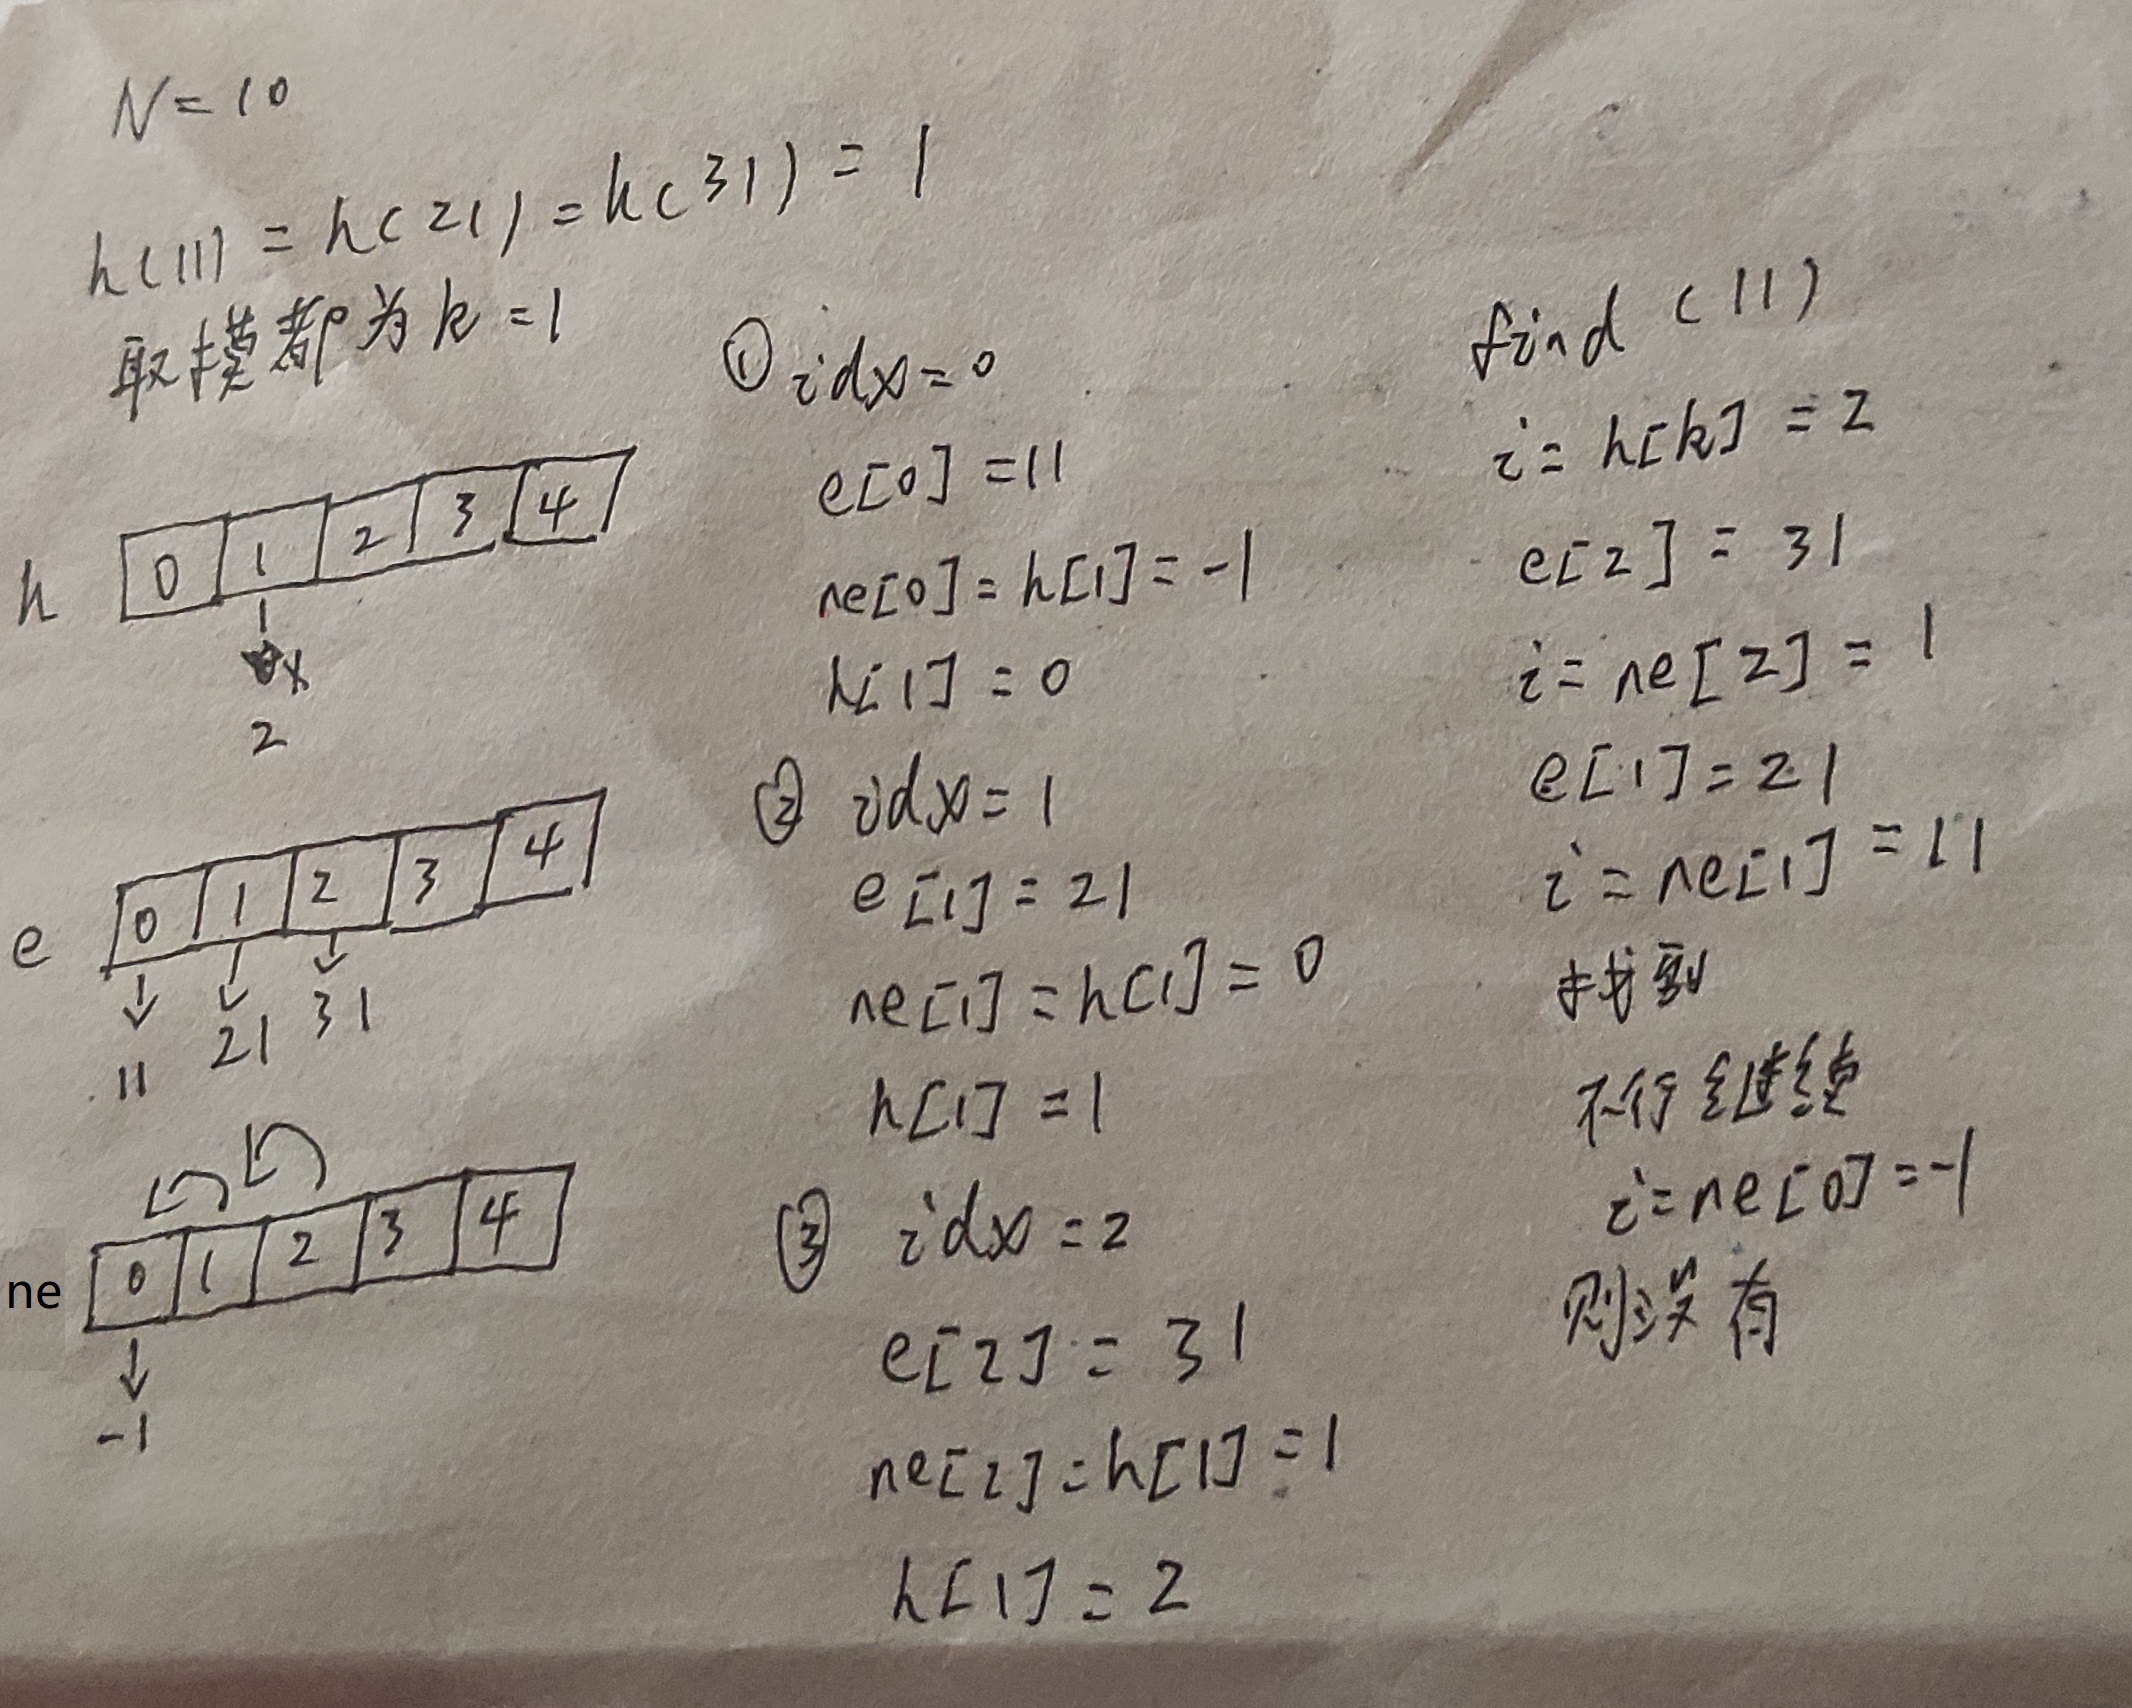 N=10
h(11)=h(21)=h(31)=1
取模都为k=1
h 0 1 2 3 4
2
e 0 1 2 3 4
11 21 31
ne 0 1 2 3 4
-1
① idx=0
e[0]=11
ne[0]=h[1]=-1
h[1]=0
② idx=1
e[1]=21
ne[1]=h[1]=0
h[1]=1
③ idx=2
e[2]=31
ne[2]=h[1]=1
h[1]=2
find(11)
i=h[k]=2
e[2]=31
i=ne[2]=1
e[1]=21
i=ne[1]=11
找到
不行继续
i=ne[0]=-1
则没有